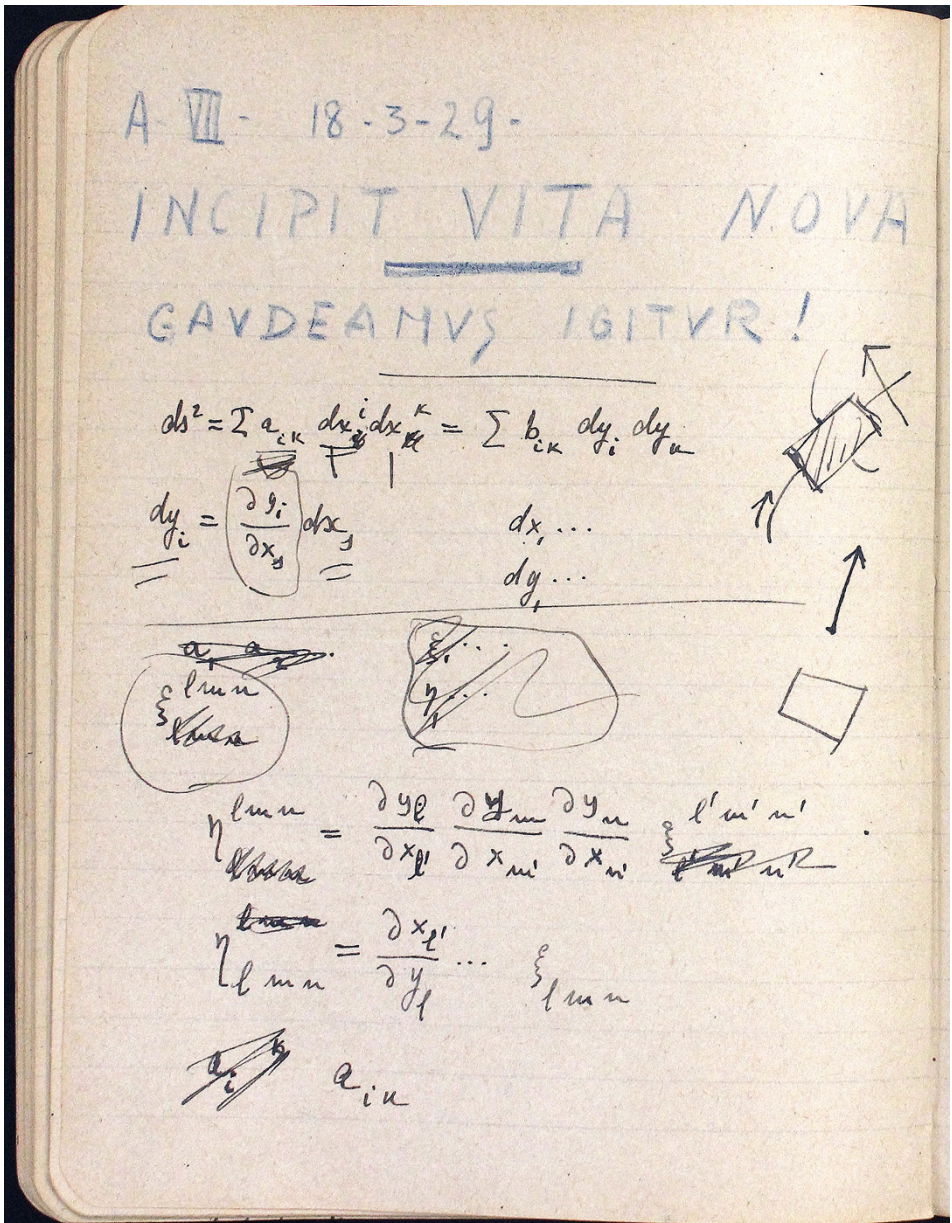 A-VII- 18-3-29-
INCIPIT VITA NOVA
GAVDEAMVS IGITVR!
ds² = Σ a_{ik} dx^i dx^k = Σ b_{ik} dy_i dy_k
dy_i = ∂y_i/∂x_s dx_s dx_1 ...
dy_1 ...
ξ_1 ...
ξ^{lmn} η_1 ...
η^{lmn} = ∂y_l/∂x_{l'} ∂y_m/∂x_{m'} ∂y_n/∂x_{n'} ξ^{l'm'n'}
η_{lmn} = ∂x_{l'}/∂y_l ... ξ_{lmn}
a_i^k a_{ik}